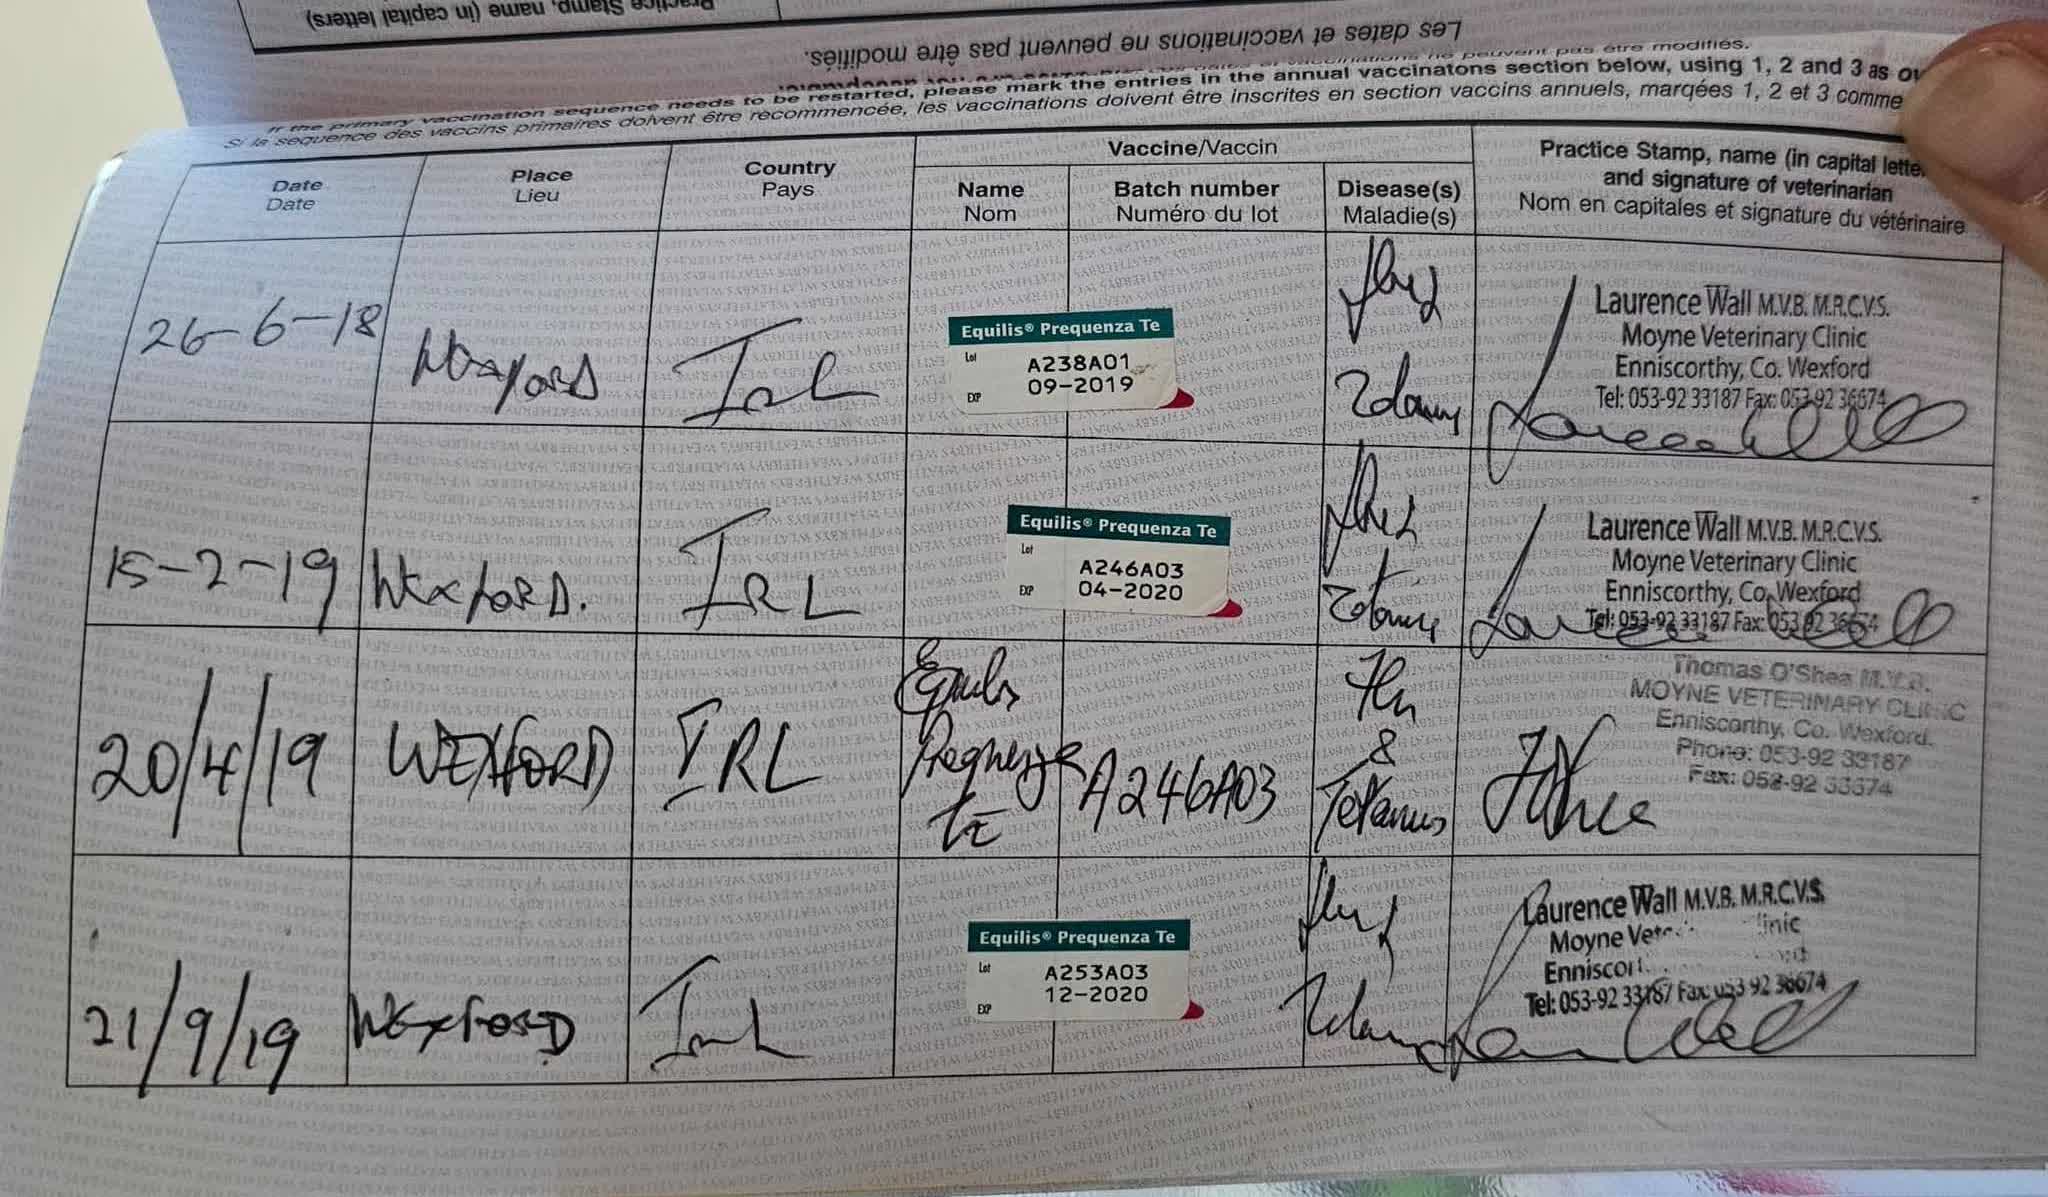 Practice Stamp, name (in capital letters)
Les dates et vaccinations ne peuvent pas être modifiés.
If the primary vaccination sequence needs to be restarted, please mark the entries in the annual vaccinatons section below, using 1, 2 and 3 as
Si la sequence des vaccins primaires doivent être recommencée, les vaccinations doivent être inscrites en section vaccins annuels, marqées 1, 2 et 3 comme
Date
Date
Place
Lieu
Country
Pays
Vaccine/Vaccin
Name
Nom
Batch number
Numéro du lot
Disease(s)
Maladie(s)
Practice Stamp, name (in capital lette
and signature of veterinarian
Nom en capitales et signature du vétérinaire
26-6-18
Wexford
Irl
Equilis® Prequenza Te
Lot A238A01
EXP 09-2019
Laurence Wall M.V.B. M.R.C.V.S.
Moyne Veterinary Clinic
Enniscorthy, Co. Wexford
Tel: 053-92 33187 Fax: 053-92 36674
15-2-19
Wexford.
IRL
Equilis® Prequenza Te
Lot A246A03
EXP 04-2020
Laurence Wall M.V.B. M.R.C.V.S.
Moyne Veterinary Clinic
Enniscorthy, Co. Wexford
Tel: 053-92 33187 Fax: 053 92 36674
20/4/19
WEXFORD
IRL
Equilis
Prequenza
TE
A246A03
Flu
&
Tetanus
Thomas O'Shea M.V.B.
MOYNE VETERINARY CLINIC
Enniscorthy, Co. Wexford.
Phone: 053-92 33187
21/9/19
WExFORD
Irl
Equilis® Prequenza Te
Lot A253A03
EXP 12-2020
Laurence Wall M.V.B. M.R.C.V.S.
Moyne
Tel: 053-92 33187 Fax: 053 92 36674